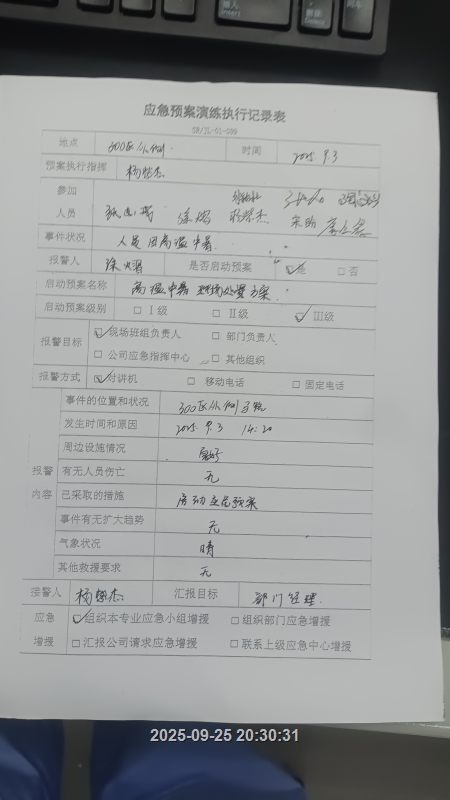 应急预案演练执行记录表
地点 300区 时间 2025.9.3
预案执行指挥 杨荣杰
参加人员 杨荣杰
事件状况 人员因高温中暑
报警人 是否启动预案 ☑是 □否
启动预案名称 高温中暑现场处置方案
启动预案级别 □Ⅰ级 □Ⅱ级 ☑Ⅲ级
报警目标 ☑现场班组负责人 □部门负责人
□公司应急指挥中心 □其他组织
报警方式 ☑对讲机 □移动电话 □固定电话
报警内容
事件的位置和状况 300区
发生时间和原因 2025.9.3 14:20
周边设施情况 良好
有无人员伤亡 无
已采取的措施 启动应急预案
事件有无扩大趋势 无
气象状况 晴
其他救援要求 无
接警人 杨荣杰 汇报目标 部门经理
应急增援 ☑组织本专业应急小组增援 □组织部门应急增援
□汇报公司请求应急增援 □联系上级应急中心增援
2025-09-25 20:30:31